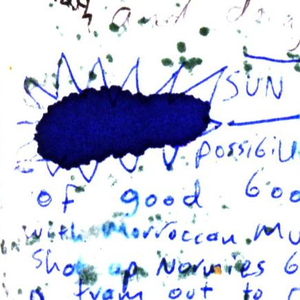 and
SUN
possibili
of good Goo
with Morroccan Mu
Show up Normies G
tram out to